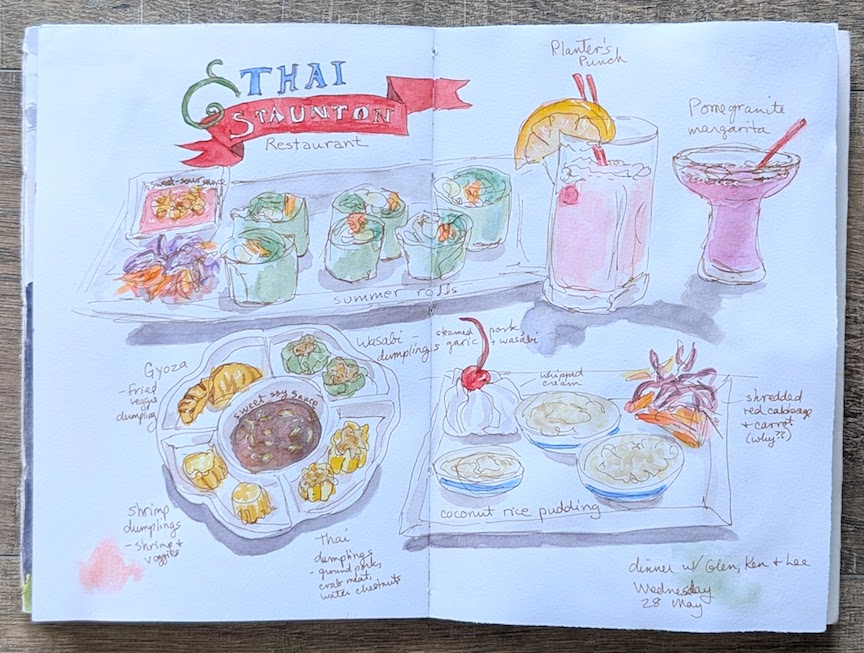 THAI
STAUNTON
Restaurant
Planter's
Punch
Pomegranite
margarita
sweet-sour sauce
summer rolls
Gyoza
- fried
veggie
dumpling
Wasabi
dumplings
steamed pork
garic + wasabi
sweet soy sauce
shrimp
dumplings
- shrimp +
veggies
Thai
dumplings
- ground pork,
crab meat,
water chestnuts
whipped
cream
shredded
red cabbage
+ carrot
(why?!)
coconut rice pudding
dinner w/ Glen, Ken + Lee
Wednesday
28 May